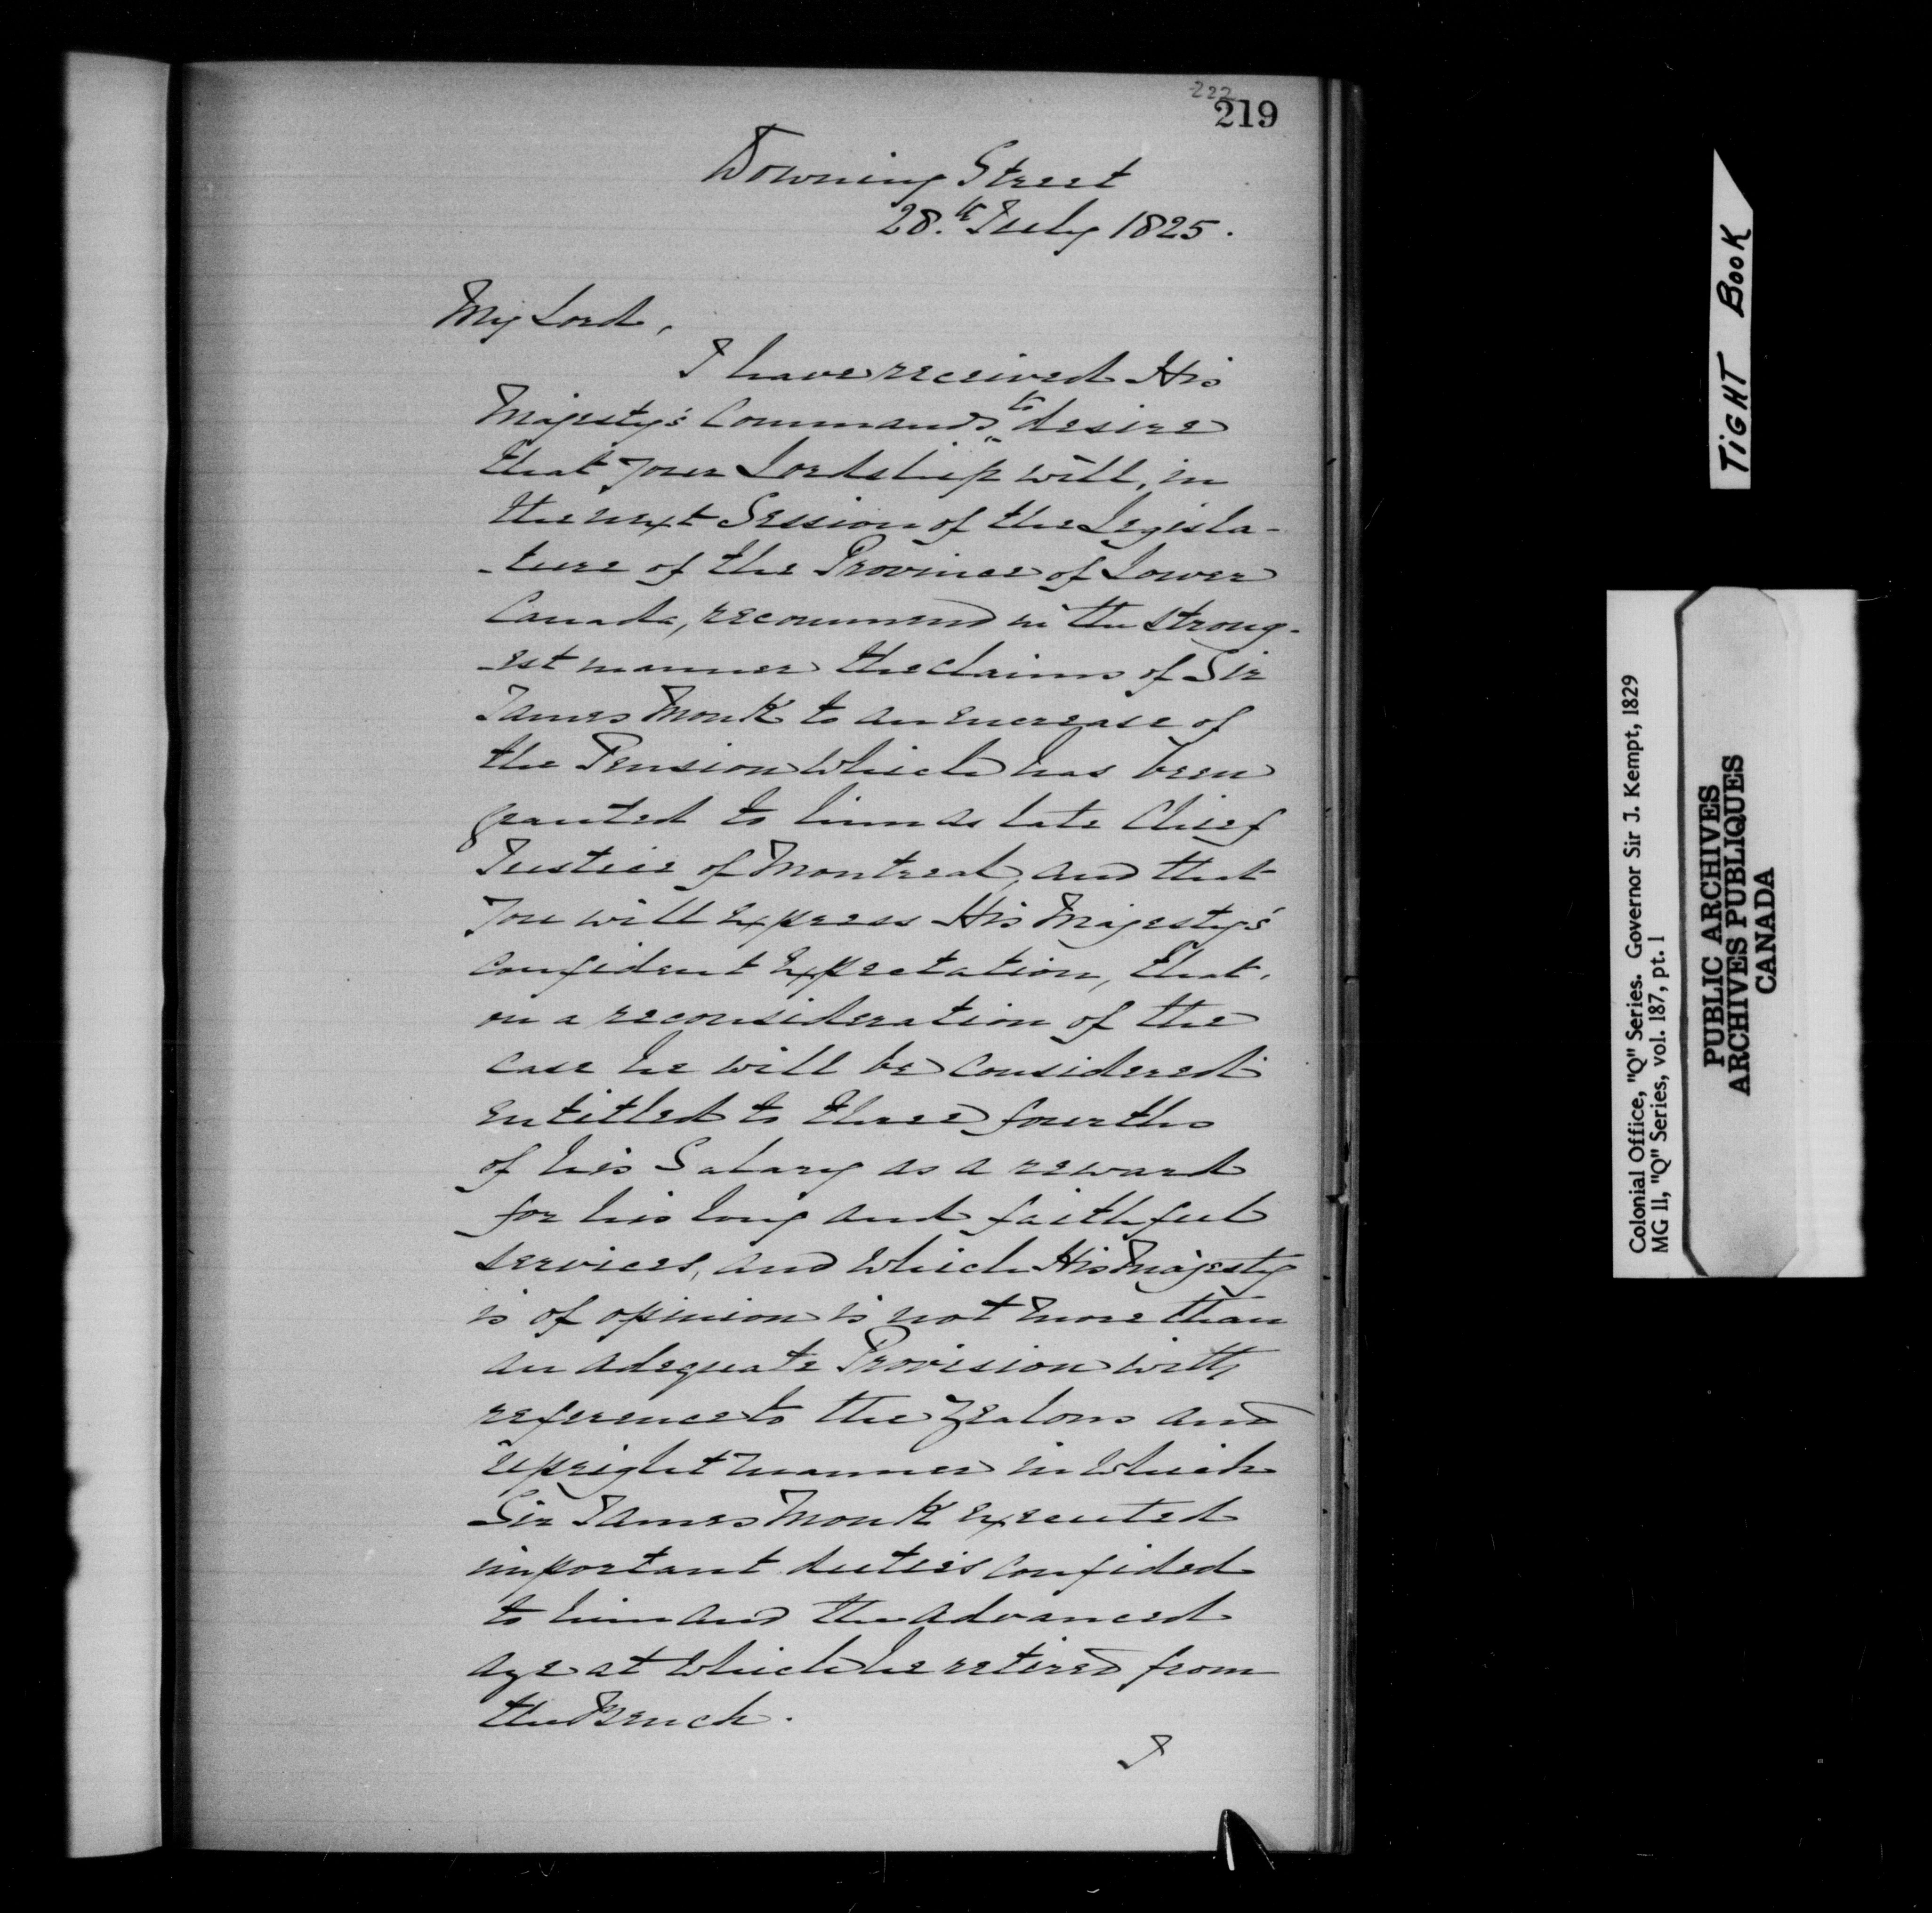 222
219
Downing Street
28.th July 1825.
My Lord,
I have received His
Majesty's Commands to desire
that your Lordship will, in
the next Session of the Legisla-
-ture of the Province of Lower
Canada, recommend in the strong-
-est manner the claims of Sir
James Monk to an increase of
the Pension which has been
granted to him as late Chief
Justice of Montreal, and that
you will express His Majesty's
confident expectation, that,
on a reconsideration of the
case he will be considered
entitled to three fourths
of his Salary as a reward
for his long and faithful
services, and which His Majesty
is of opinion is not more than
an adequate Provision with
reference to the zealous and
upright manner in which
Sir James Monk executed
important duties confided
to him and the advanced
age at which he retired from
the Bench.
I
TIGHT BOOK
Colonial Office, "Q" Series. Governor Sir J. Kempt, 1829
MG 11, "Q" Series, vol. 187, pt. 1
PUBLIC ARCHIVES
ARCHIVES PUBLIQUES
CANADA